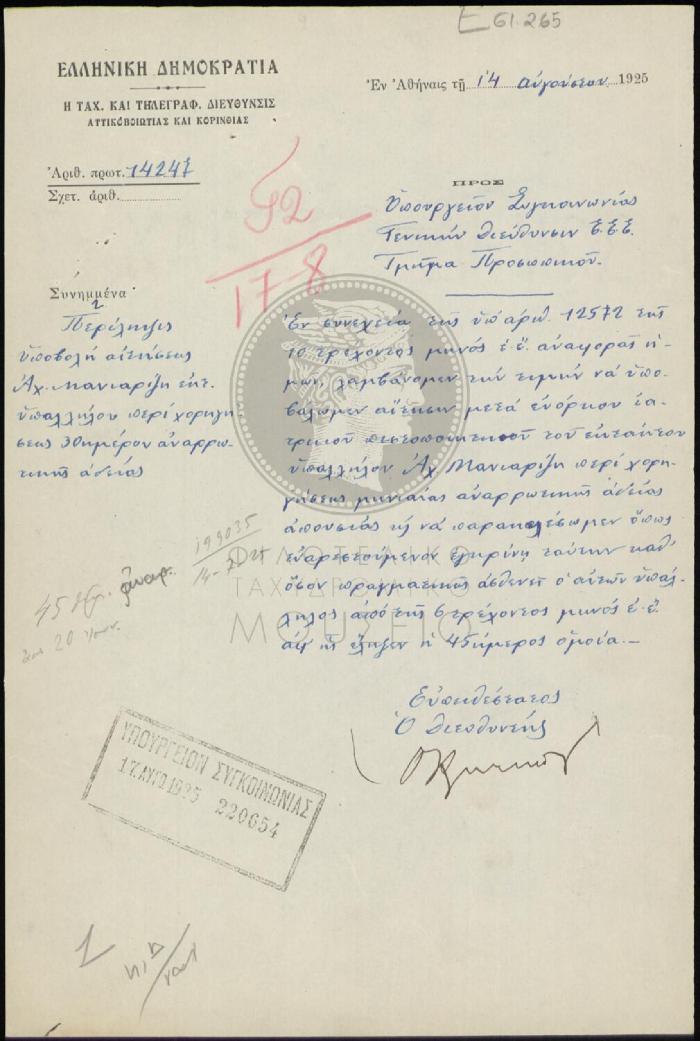 Ε 61.265
ΕΛΛΗΝΙΚΗ ΔΗΜΟΚΡΑΤΙΑ
Η ΤΑΧ. ΚΑΙ ΤΗΛΕΓΡΑΦ. ΔΙΕΥΘΥΝΣΙΣ
ΑΤΤΙΚΟΒΟΙΩΤΙΑΣ ΚΑΙ ΚΟΡΙΝΘΙΑΣ
Ἐν Ἀθήναις τῇ 14 Αὐγούστου 1925
Ἀριθ. πρωτ. 14247
Σχετ. ἀριθ.
52
17-8
ΠΡΟΣ
Ὑπουργεῖον Συγκοινωνίας
Γενικὴν Διεύθυνσιν
Τμῆμα Προσωπικοῦ.
Συνημμένα
2
Περίληψις
ὑποβολὴ αἰτήσεως
Ἀχ. Μανιαρίζη ἐκτ.
ὑπαλλήλου περὶ χορηγή
σεως 30ημέρου ἀναρρω
τικῆς ἀδείας
Ἐν συνεχείᾳ τῆς ὑπ' ἀριθ. 12572 τῆς
10 τρέχοντος μηνὸς ἐ.ἔ. ἀναφορᾶς ἡ-
μῶν, λαμβάνομεν τὴν τιμὴν νὰ ὑπο-
βάλωμεν αἴτησιν μετὰ ἐνόρκου ἰα-
τρικοῦ πιστοποιητικοῦ τοῦ ἐκτάκτου
ὑπαλλήλου Ἀχ. Μανιαρίζη περὶ χορη-
γήσεως μηνιαίας ἀναρρωτικῆς ἀδείας
ἀπουσίας νὰ παρακαλέσωμεν ὅπως
εὐαρεστούμενοι ἐγκρίνῃ ταύτην καθ'
ὅσον πραγματικῶς ἀσθενεῖ ὁ ὑπάλ-
ληλος ἀπὸ τῆς 6 τρέχοντος μηνὸς ἐ.ἔ.
ἀφ' ἧς ἔληξεν ἡ 45ήμερος ὁμοία.-
199035
45
20
ΦΙΛΟΤΕΛΙΚΟ
ΤΑΧΥΔΡΟΜΙΚΟ
ΜΟΥΣΕΙΟ
Εὐπειθέστατος
Ὁ Διευθυντὴς
ΥΠΟΥΡΓΕΙΟΝ ΣΥΓΚΟΙΝΩΝΙΑΣ
17 ΑΥΓ 1925 220654